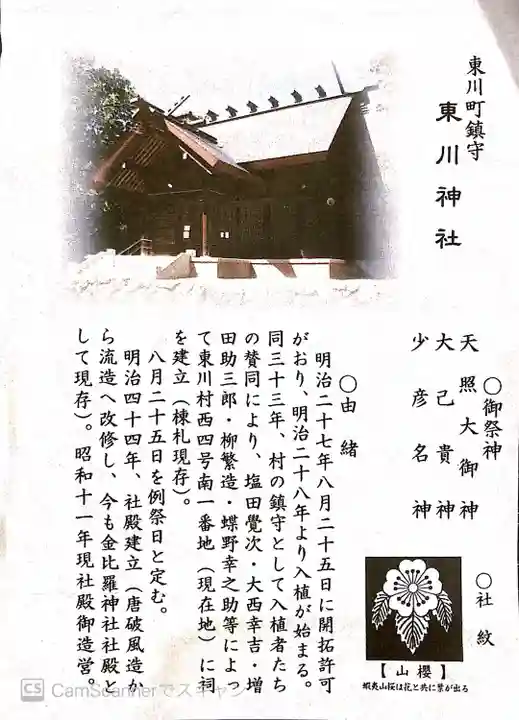 東川町鎮守
東川神社
〇御祭神
天照大御神
大己貴神
少彦名神
〇社紋
【山櫻】
蝦夷山桜は花と共に葉が出る
〇由緒
明治二十七年八月二十五日に開拓許可
がおり、明治二十八年より入植が始まる。
同三十三年、村の鎮守として入植者たち
の賛同により、塩田覺次・大西幸吉・増
田助三郎・柳繁造・蝶野幸之助等によっ
て東川村西四号南一番地(現在地)に祠
を建立(棟札現存)。
八月二十五日を例祭日と定む。
明治四十四年、社殿建立(唐破風造か
ら流造へ改修し、今も金比羅神社社殿と
して現存)。昭和十一年現社殿御造営。
CS CamScannerでスキャン